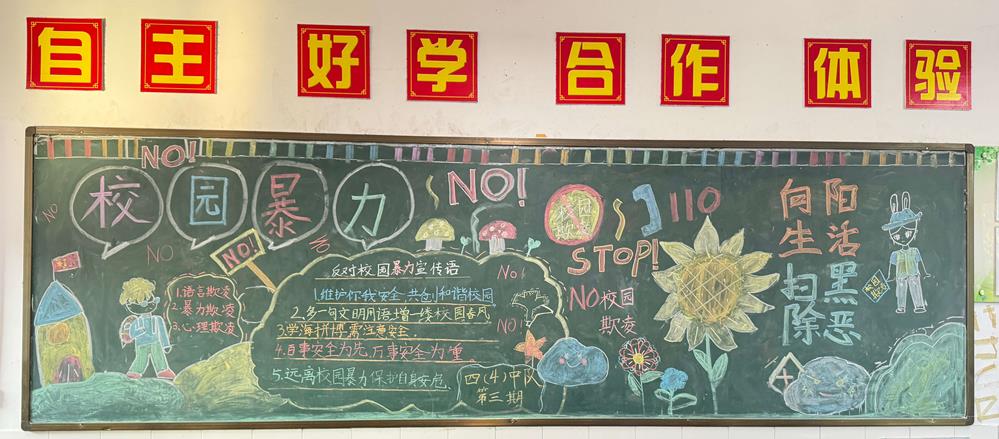 自主 好学 合作 体验
NO!
校园暴力
NO
NO
NO!
NO
NO!
校园
欺凌
STOP!
110
NO校园
欺凌
向阳
生活
扫黑
除恶
校园
欺凌
1.语言欺凌
2.暴力欺凌
3.心理欺凌
反对校园暴力宣传语
1.维护你我安全,共创和谐校园
2.多一句文明用语,增一缕校园春风
3.学海拼搏,需注意安全
4.百事安全为先,万事安全为重
5.远离校园暴力保护自身安危
NO!
NO!
四(4)中队
第三期